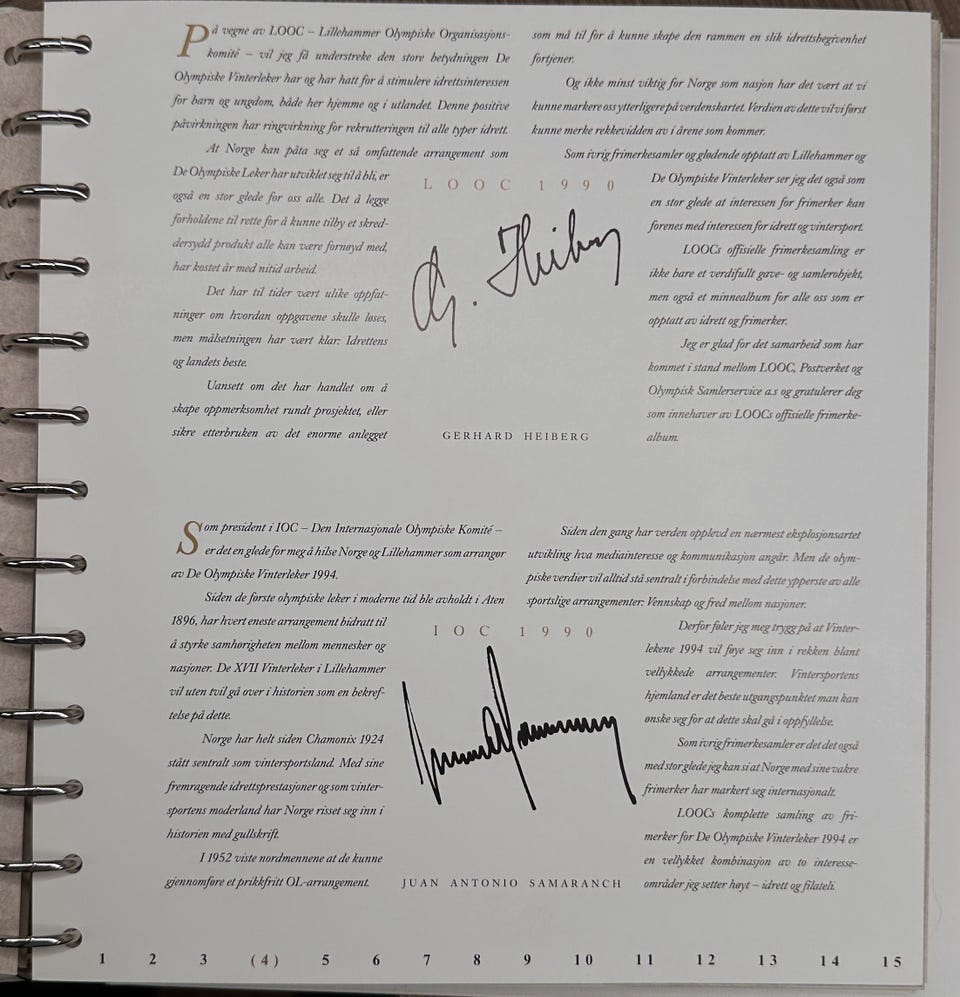 På vegne av LOOC – Lillehammer Olympiske Organisasjons-
komité – vil jeg få understreke den store betydningen De
Olympiske Vinterleker har og har hatt for å stimulere idrettsinteressen
for barn og ungdom, både her hjemme og i utlandet. Denne positive
påvirkningen har ringvirkning for rekrutteringen til alle typer idrett.
At Norge kan påta seg et så omfattende arrangement som
De Olympiske Leker har utviklet seg til å bli, er
også en stor glede for oss alle. Det å legge
forholdene til rette for å kunne tilby et skred-
dersydd produkt alle kan være fornøyd med,
har kostet år med nitid arbeid.
Det har til tider vært ulike oppfat-
ninger om hvordan oppgavene skulle løses,
men målsetningen har vært klar: Idrettens
og landets beste.
Uansett om det har handlet om å
skape oppmerksomhet rundt prosjektet, eller
sikre etterbruken av det enorme anlegget
som må til for å kunne skape den rammen en slik idrettsbegivenhet
fortjener.
Og ikke minst viktig for Norge som nasjon har det vært at vi
kunne markere oss ytterligere på verdenskartet. Verdien av dette vil vi først
kunne merke rekkevidden av i årene som kommer.
Som ivrig frimerkesamler og glødende opptatt av Lillehammer og
De Olympiske Vinterleker ser jeg det også som
en stor glede at interessen for frimerker kan
forenes med interessen for idrett og vintersport.
LOOCs offisielle frimerkesamling er
ikke bare et verdifullt gave- og samlerobjekt,
men også et minnealbum for alle oss som er
opptatt av idrett og frimerker.
Jeg er glad for det samarbeid som har
kommet i stand mellom LOOC, Postverket og
Olympisk Samlerservice a.s og gratulerer deg
som innehaver av LOOCs offisielle frimerke-
album.
LOOC 1990
G. Heiberg
GERHARD HEIBERG
Som president i IOC – Den Internasjonale Olympiske Komité –
er det en glede for meg å hilse Norge og Lillehammer som arrangør
av De Olympiske Vinterleker 1994.
Siden de første olympiske leker i moderne tid ble avholdt i Aten
1896, har hvert eneste arrangement bidratt til
å styrke samhørigheten mellom mennesker og
nasjoner. De XVII Vinterleker i Lillehammer
vil uten tvil gå over i historien som en bekref-
telse på dette.
Norge har helt siden Chamonix 1924
stått sentralt som vintersportsland. Med sine
fremragende idrettsprestasjoner og som vinter-
sportens moderland har Norge risset seg inn i
historien med gullskrift.
I 1952 viste nordmennene at de kunne
gjennomføre et prikkfritt OL-arrangement.
Siden den gang har verden opplevd en nærmest eksplosjonsartet
utvikling hva mediainteresse og kommunikasjon angår. Men de olym-
piske verdier vil alltid stå sentralt i forbindelse med dette ypperste av alle
sportslige arrangementer: Vennskap og fred mellom nasjoner.
Derfor føler jeg meg trygg på at Vinter-
lekene 1994 vil føye seg inn i rekken blant
vellykkede arrangementer. Vintersportens
hjemland er det beste utgangspunktet man kan
ønske seg for at dette skal gå i oppfyllelse.
Som ivrig frimerkesamler er det det også
med stor glede jeg kan si at Norge med sine vakre
frimerker har markert seg internasjonalt.
LOOCs komplette samling av fri-
merker for De Olympiske Vinterleker 1994 er
en vellykket kombinasjon av to interesse-
områder jeg setter høyt – idrett og filateli.
IOC 1990
JUAN ANTONIO SAMARANCH
1 2 3 (4) 5 6 7 8 9 10 11 12 13 14 15